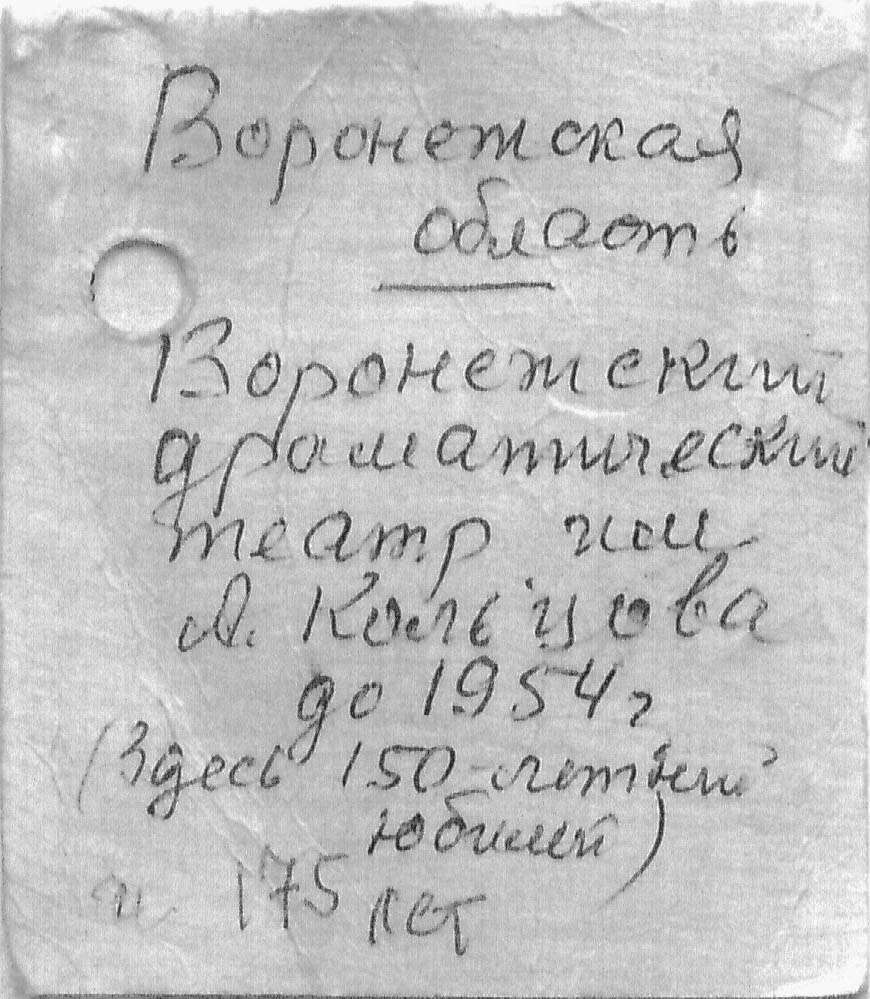 Воронежская
область
Воронежский
драматический
театр им
А. Кольцова
до 1954 г
(Здесь 150-летний
юбилей)
и 175 лет